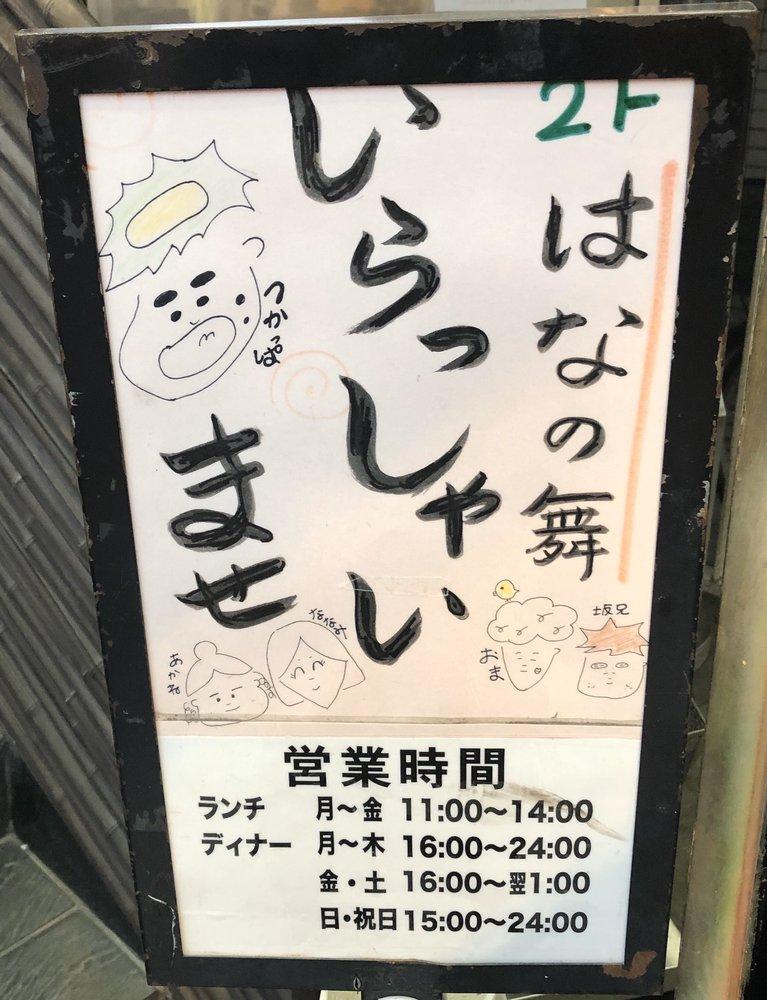 2F
はなの舞
いらっしゃい
ませ
つかっぱ
おま
坂兄
あかね
営業時間
ランチ 月〜金 11:00〜14:00
ディナー 月〜木 16:00〜24:00
金・土 16:00〜翌1:00
日・祝日 15:00〜24:00